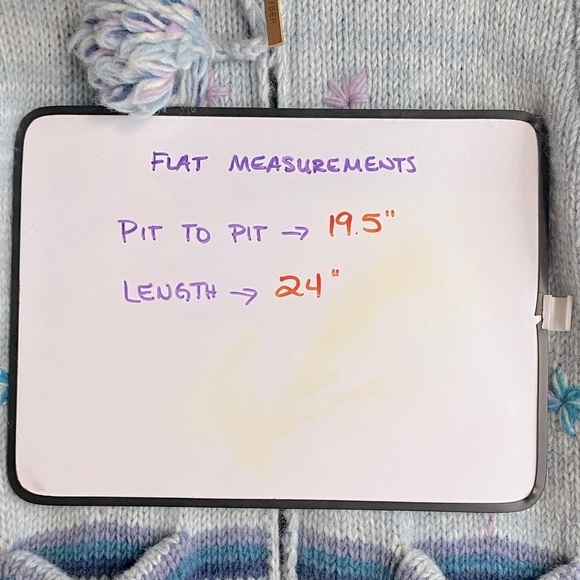 FLAT MEASUREMENTS
PIT TO PIT → 19.5"
LENGTH → 24"